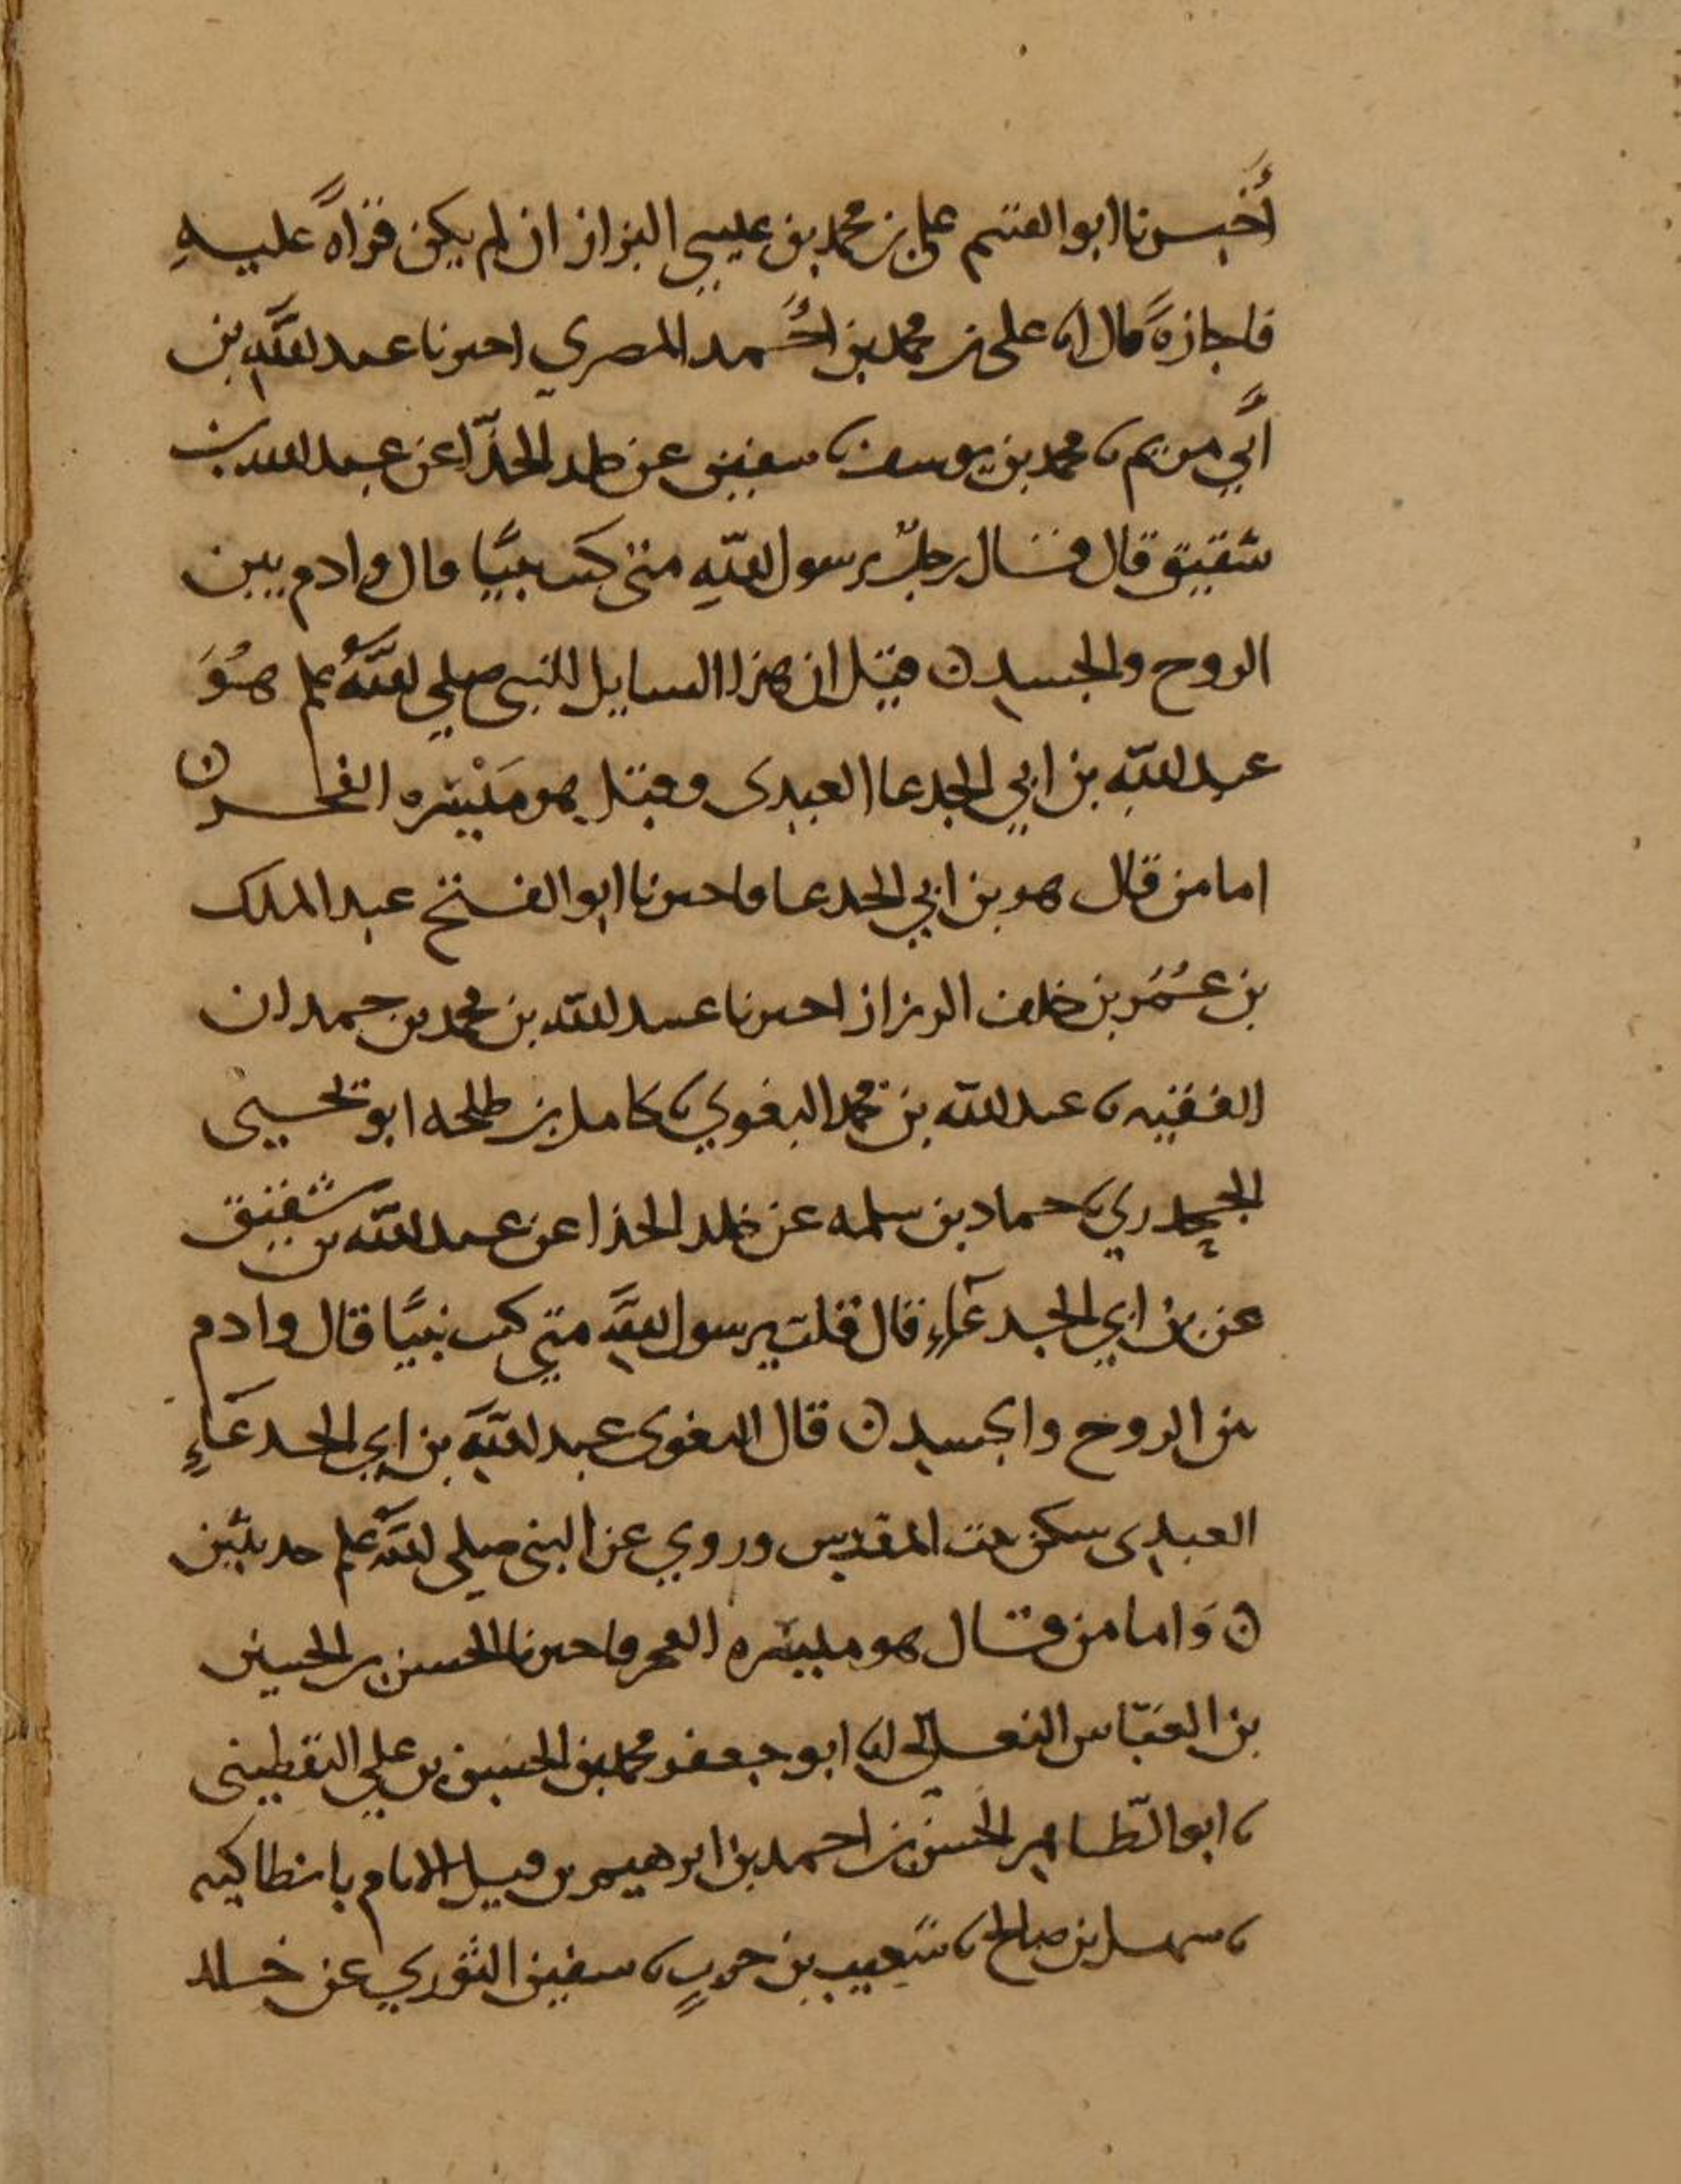 أخبرنا ابو القسم على بن محمد بن عيسى البزاز ان لم يكن قراةً عليهِ
فاجازةً قال انا على بن محمد بن احمد المصري اخبرنا عبد الله بن
أبي مريم نا محمد بن يوسف نا سفين عن خلد الحذّا عن عبد الله بن
شقيق قال قال رجلٌ يرسول اللهِ متى كنت نبيًا قال وادم بين
الروح والجسد ن قيل ان هذا السايل للنبى صلى اللهُ علم هُوَ
عبد الله بن ابي الجدعا العبدى وقيل هو مَيْسَره الفجر ن
اما من قال هو بن ابي الجدعا فاخبرنا ابو الفتح عبد الملك
بن عُمَر بن خلف الرزاز اخبرنا عبيد الله بن محمد بن حمدان
الفقيه نا عبد الله بن محمد البغوي نا كامل بن طلحه ابو يحيى
الجحدري نا حماد بن سلمه عن خلد الحذا عن عبد الله بن شقيق
عن بن ابي الجدعاءِ قال قلت يرسول الله متى كنت نبيًا قال وادم
بين الروح والجسد ن قال البغوى عبد الله بن ابي الجدعَاءِ
العبدى سكن بيت المقدس وروي عن النبى صلى الله علم حديثين
ن وَاما من قال هو ميسره الفجر فاخبرنا الحسن بن الحسين
بن العبّاس النعالى انا ابو جعفر محمد بن الحسن بن علي اليقطينى
نا ابو الطّاهر الحسن بن احمد بن ابرهيم بن فيل الامام بانطاكيه
نا سهل بن صالح نا شعيب بن حربٍ نا سفين الثوري عن خالد